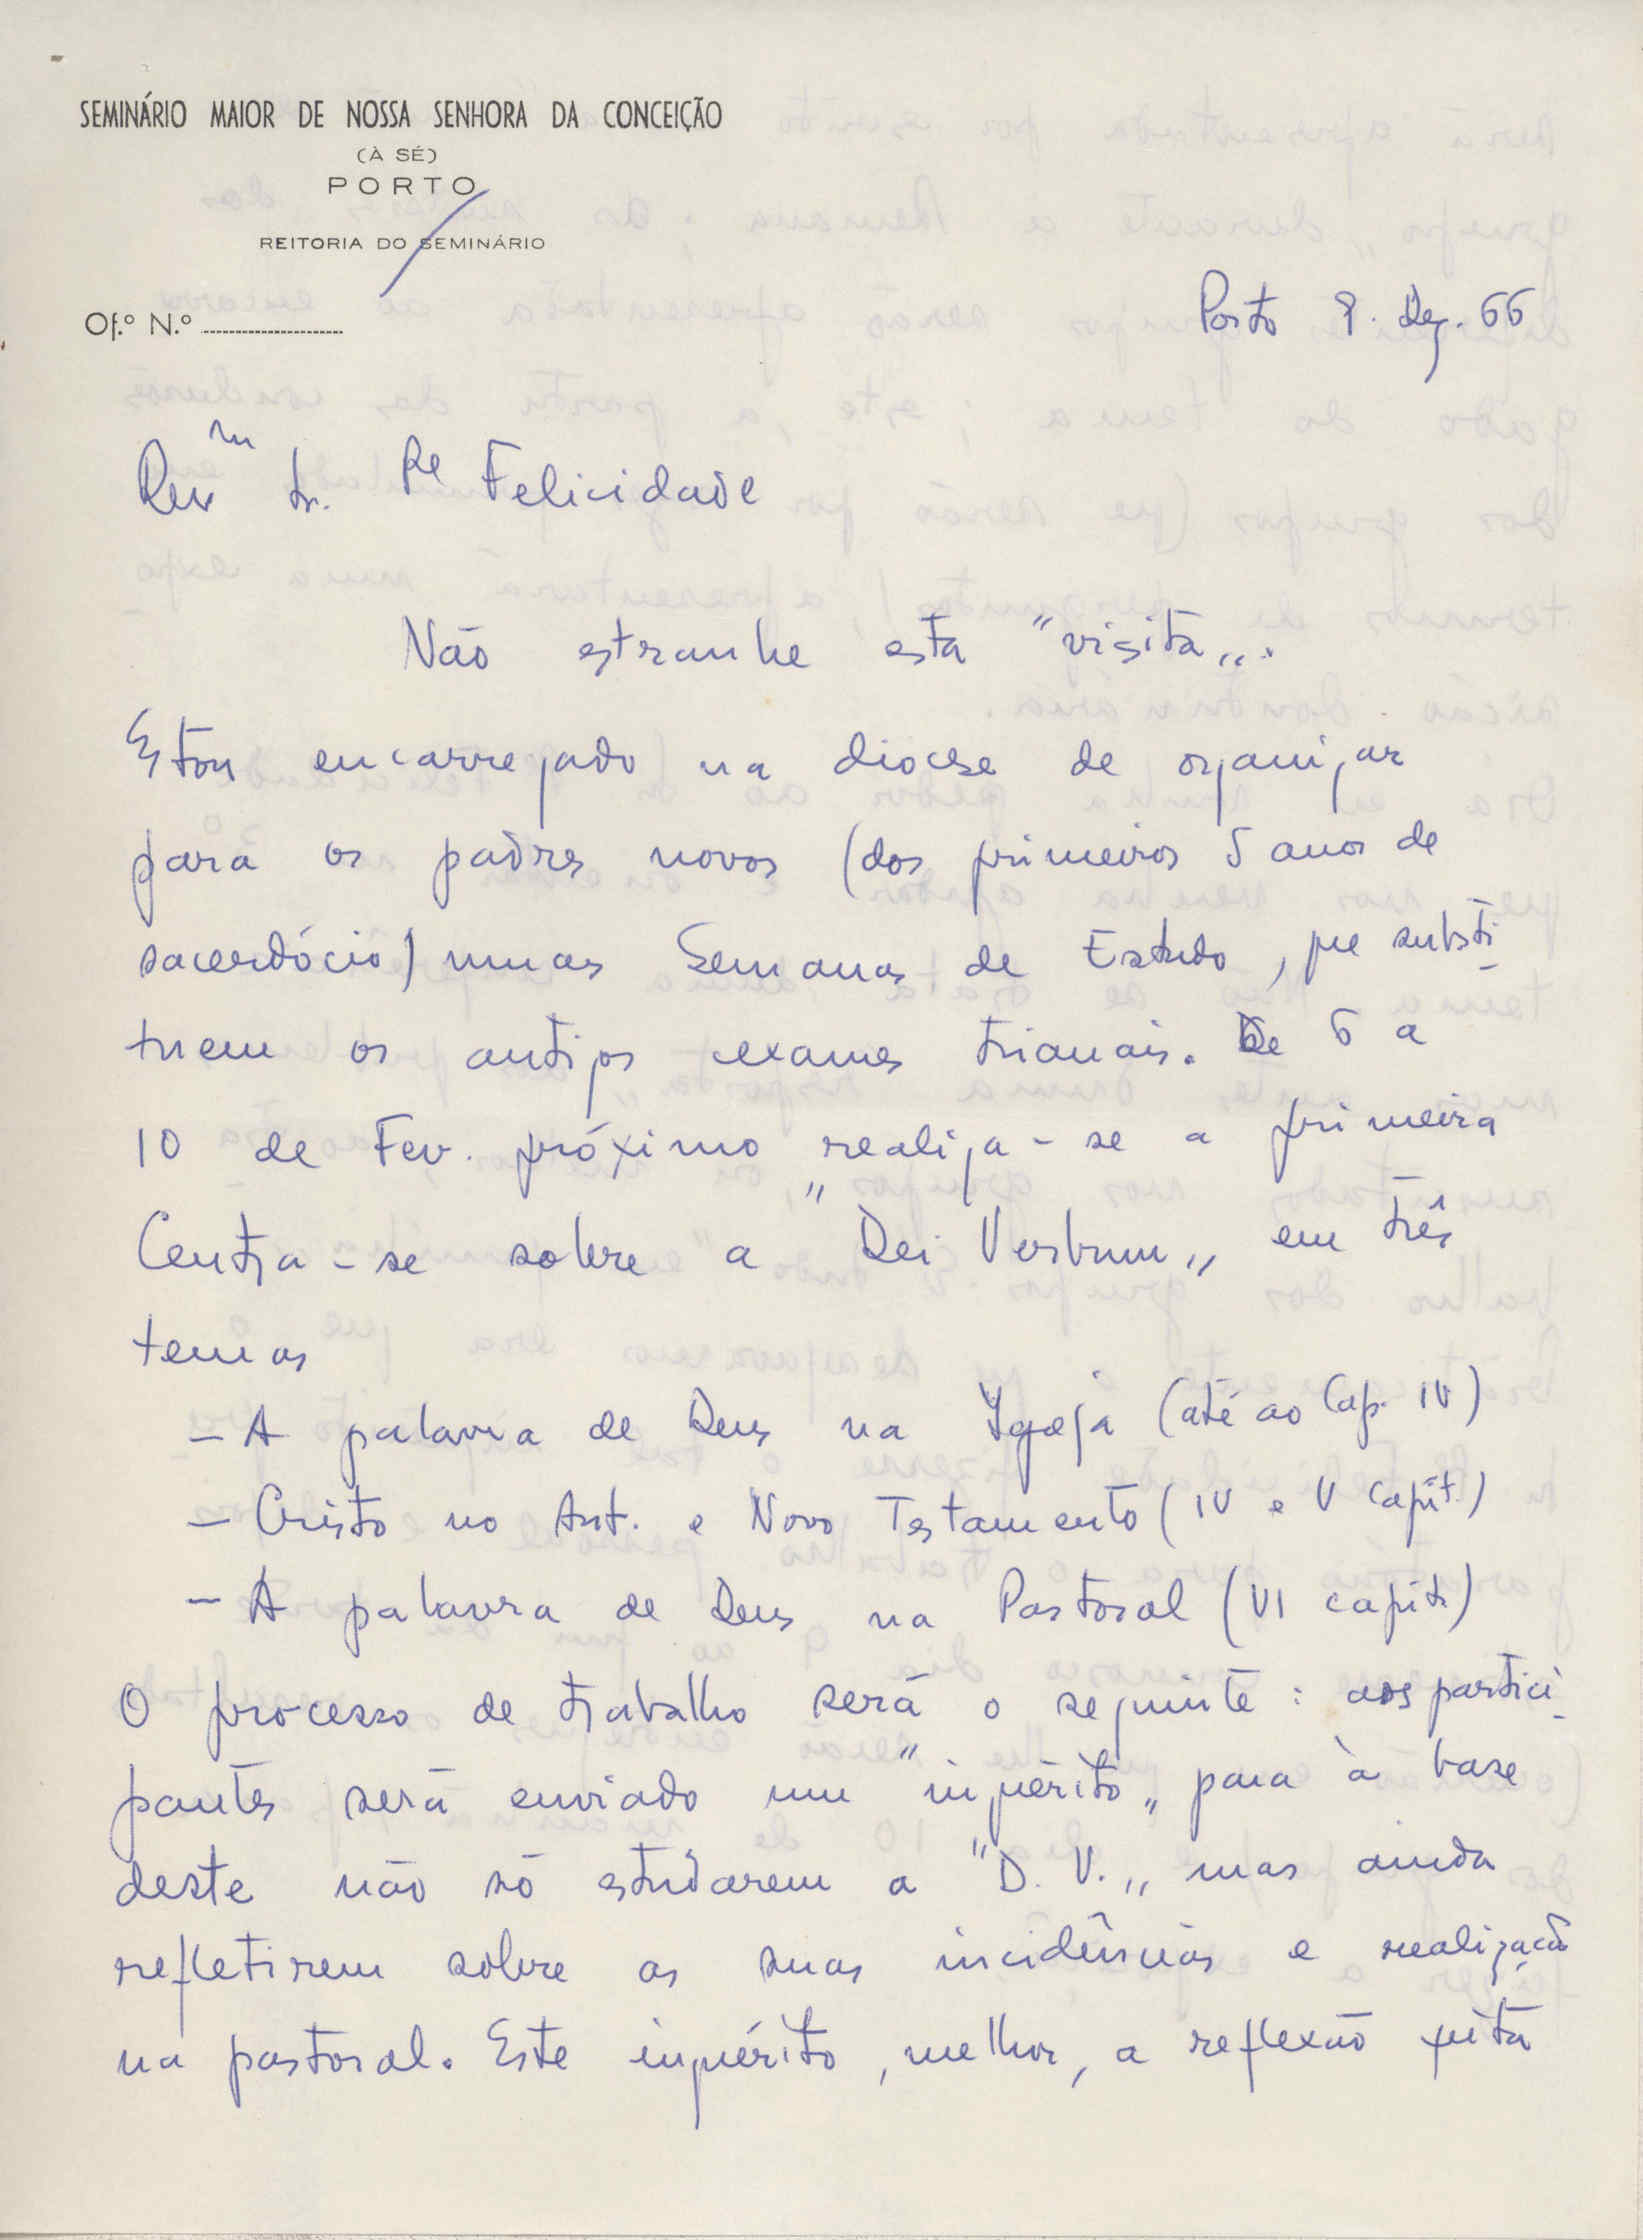 SEMINÁRIO MAIOR DE NOSSA SENHORA DA CONCEIÇÃO
(À SÉ)
PORTO
REITORIA DO SEMINÁRIO
Of.º N.º
Porto 8. Dez. 66
Rev.m Sr. Pe Felicidade
Não estranhe esta "visita".
Estou encarregado na diocese de organizar
para os padres novos (dos primeiros 5 anos de
sacerdócio) umas Semanas de Estudo, que substi-
tuem os antigos exames trianais. De 6 a
10 de Fev. próximo realiza-se a primeira
Centra-se sobre a "Dei Verbum" em três
temas
- A palavra de Deus na Igreja (até ao Cap. IV)
- Cristo no Ant. e Novo Testamento (IV e V capít.)
- A palavra de Deus na Pastoral (VI capít.)
O processo de trabalho será o seguinte: aos partici-
pantes será enviado um "inquérito" para à base
deste não só estudarem a "D. V." mas ainda
refletirem sobre as suas incidências e realização
na pastoral. Este inquérito, melhor, a reflexão feita